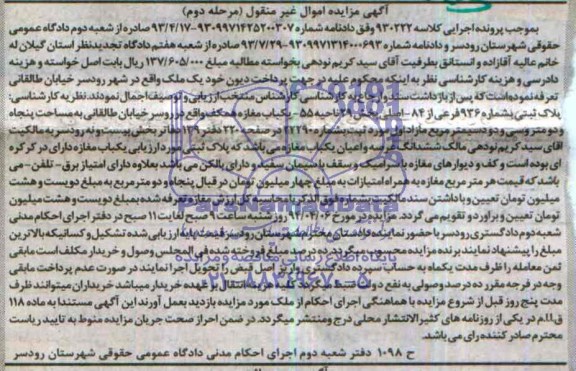 آگهی مزایده اموال غیر منقول (مرحله دوم)
بموجب پرونده اجرایی کلاسه ۹۳۰۲۲۲ وفق دادنامه شماره ۹۳۰۹۹۷۱۴۲۵۲۰۰۳۰۷-۹۳/۴/۱۷ صادره از شعبه دوم دادگاه عمومی
حقوقی شهرستان رودسر و دادنامه شماره ۹۳۰۹۹۷۱۳۱۴۰۰۰۶۹۳-۹۳/۷/۲۹ صادره از شعبه هفتم دادگاه تجدیدنظر استان گیلان له
خانم عالیه آقازاده و استانتاق بطرفیت آقای سید کریم نودهی بخواسته مطالبه مبلغ ۱۳۷/۶۰۵/۰۰۰ ریال بابت اصل خواسته و هزینه
دادرسی و هزینه کارشناسی نظر به اینکه محکوم علیه در جهت پرداخت دیون خود یک ملک واقع در شهر رودسر خیابان طالقانی
تعرفه نموده است که پس از بازداشت کارشناس منتخب ارزیابی و توصیف اجمال نمودند. نظر به کارشناسی:
پلاک ثبتی بشماره ۹۳۶ فرعی از ۸۴- اصلی بخش ۲۹ ناحیه ۵۵- یکباب مغازه همکف واقع در رودسر خیابان طالقانی به مساحت پنجاه
و دو متر و سی و دو دسیمتر مربع مازاد اول مورد ثبت بشماره ۲۲۲۹۰ در صفحه ۲۲۰ دفتر ۱۳۹ دفاتر بخش بیست و نه رودسر به مالکیت
آقای سید کریم نودهی مالک ششدانگ عرصه واعیان یکباب مغازه می باشد که پلاک ثبتی مورد ارزیابی یکباب مغازه دارای در کرکره
ای بوده است و کف و دیوارهای مغازه با سرامیک و سقف با سیمان سفید و دارای بالکن می باشد بعلاوه دارای امتیاز برق- تلفن- می
باشد که قیمت هر متر مربع مغازه به همراه امتیازات به مبلغ چهار میلیون تومان در قبال پنجاه و دو متر مربع به مبلغ دویست و هشت
میلیون تومان تعیین و با داشتن سند مالکیت فوق الذکر به کلیه کل ارزش مغازه تعرفه شده بمبلغ دویست و هشت میلیون
تومان تعیین و برآورد و تقویم می گردد. مزایده در مورخ ۹۴/۰۴/۰۶ روز شنبه ساعت ۹ صبح لغایت ۱۱ صبح در دفتر اجرای احکام مدنی
شعبه دوم دادگستری رودسر با حضور نماینده دادستان محترم شهرستان رودسر قیمت پایه ارزیابی شده تشکیل و کسانیکه بالاترین
مبلغ را پیشنهاد نمایند برنده مزایده محسوب میگردد. ده درصد مبلغ فروخته شده فی المجلس وصول و خریدار مکلف است مابقی
ثمن معامله را ظرف مدت یکماه به حساب سپرده دادگستری واریز اصل فیش را تحویل اجرا نمایند در صورت عدم پرداخت مابقی
وجه در فرجه مقرر ده درصد وصولی به نفع دولت ضبط میگردد کلیه هزینه انتقال بر عهده خریدار میباشد خریداران میتوانند ظرف
مدت پنج روز قبل از شروع مزایده با هماهنگی اجرای احکام از ملک مورد مزایده بازدید بعمل آورند این آگهی مستندا به ماده ۱۱۸
ق.ا.م در یکی از روزنامه های کثیرالانتشار محلی درج و منتشر میگردد. در ضمن احراز صحت جریان مزایده منوط به تایید ریاست
محترم صادر کننده رای می باشد.
ح ۱۰۹۸ دفتر شعبه دوم اجرای احکام مدنی دادگاه عمومی حقوقی شهرستان رودسر